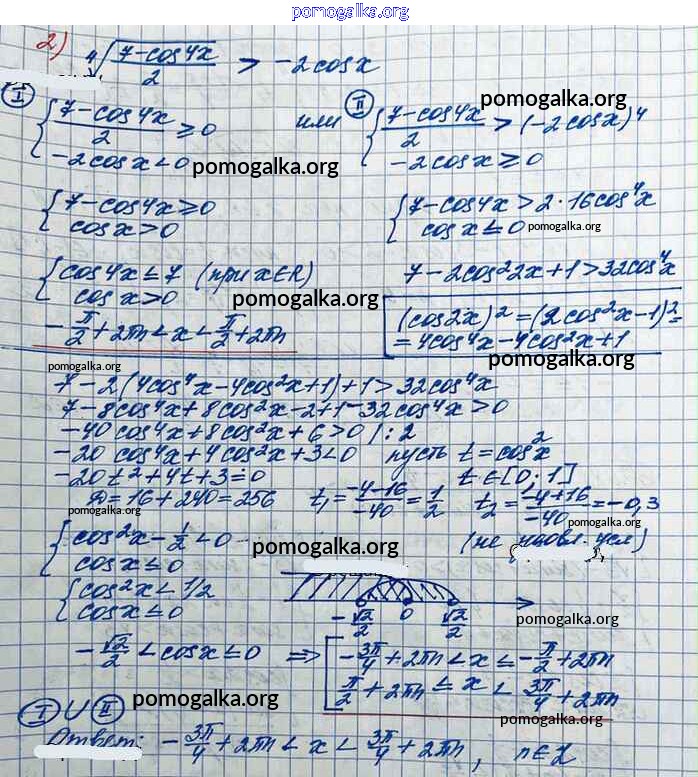 pomogalka.org
2) ⁴√((7-cos4x)/2) > -2cosx
I { (7-cos4x)/2 ≥ 0 или II { (7-cos4x)/2 > (-2cosx)⁴ pomogalka.org
-2cosx < 0 pomogalka.org -2cosx ≥ 0
{ 7-cos4x ≥ 0 { 7-cos4x > 2·16cos⁴x
cosx > 0 cosx ≤ 0 pomogalka.org
{ cos4x ≤ 7 (при x∈R) 7-2cos²2x+1 > 32cos⁴x
cosx > 0 pomogalka.org
-π/2+2πn < x < π/2+2πn (cos2x)² = (2cos²x-1)² =
= 4cos⁴x-4cos²x+1
pomogalka.org pomogalka.org
7-2(4cos⁴x-4cos²x+1)+1 > 32cos⁴x
7-8cos⁴x+8cos²x-2+1-32cos⁴x > 0
-40cos⁴x+8cos²x+6 > 0 /:2
-20cos⁴x+4cos²x+3 < 0 пусть t = cos²x
-20t²+4t+3 = 0 t∈[0;1]
D = 16+240 = 256 t₁ = (-4-16)/-40 = 1/2 t₂ = (-4+16)/-40 = -0,3
pomogalka.org pomogalka.org
{ cos²x - 1/2 < 0 (не удовл. усл)
cosx ≤ 0 pomogalka.org
{ cos²x < 1/2
cosx ≤ 0 -√2/2 0 √2/2 pomogalka.org
-√2/2 < cosx ≤ 0 ⇒ [ -3π/4+2πn < x ≤ -π/2+2πn
π/2+2πn ≤ x < 3π/4+2πn
I ∪ II pomogalka.org pomogalka.org
Ответ: -3π/4+2πn < x < 3π/4+2πn, n∈Z